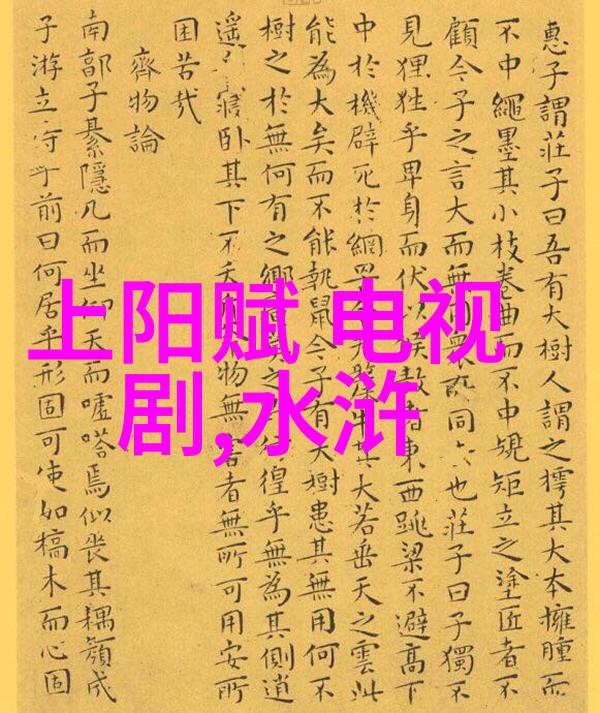 上阳赋 电视
剧,水浒
惠子謂莊子曰吾有大樹人謂之樗其大本擁腫而
不中繩墨其小枝卷曲而不中規矩立之塗匠者不
顧今子之言大而無同也莊子曰子獨不
見狸狌乎卑身而伏以候敖者東西跳梁不避高下
中於機辟死於網罟其大若垂天之雲此
能為大矣而不能執鼠今子有大樹患其無用何不
樹之於無何有之鄉之徨乎無為其側逍
遥寢卧其下不夭物無害者無所可用安所
困苦哉
齊物論
南郭子綦隱几而坐仰天而噓嗒焉似喪其耦顏成
子游立侍乎前曰何居乎形固可使如槁木而心固